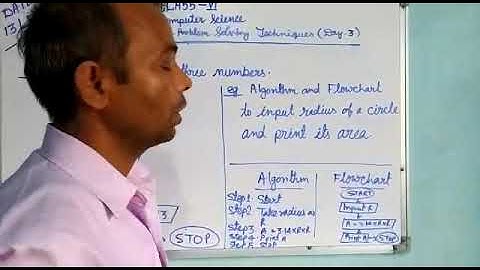 CLASS-VI
Computer Science
Problem Solving Techniques (Day-3)
three numbers.
eg Algorithm and Flowchart
to input radius of a circle
and print its area
Algorithm
Step1 Start
Step2 Take radius as
R
Step3 A = 3.14×R×R
Step4 Print A
Step5 Stop
Flowchart
START
Input R
A = 3.14×R×R
Print A
STOP
STOP